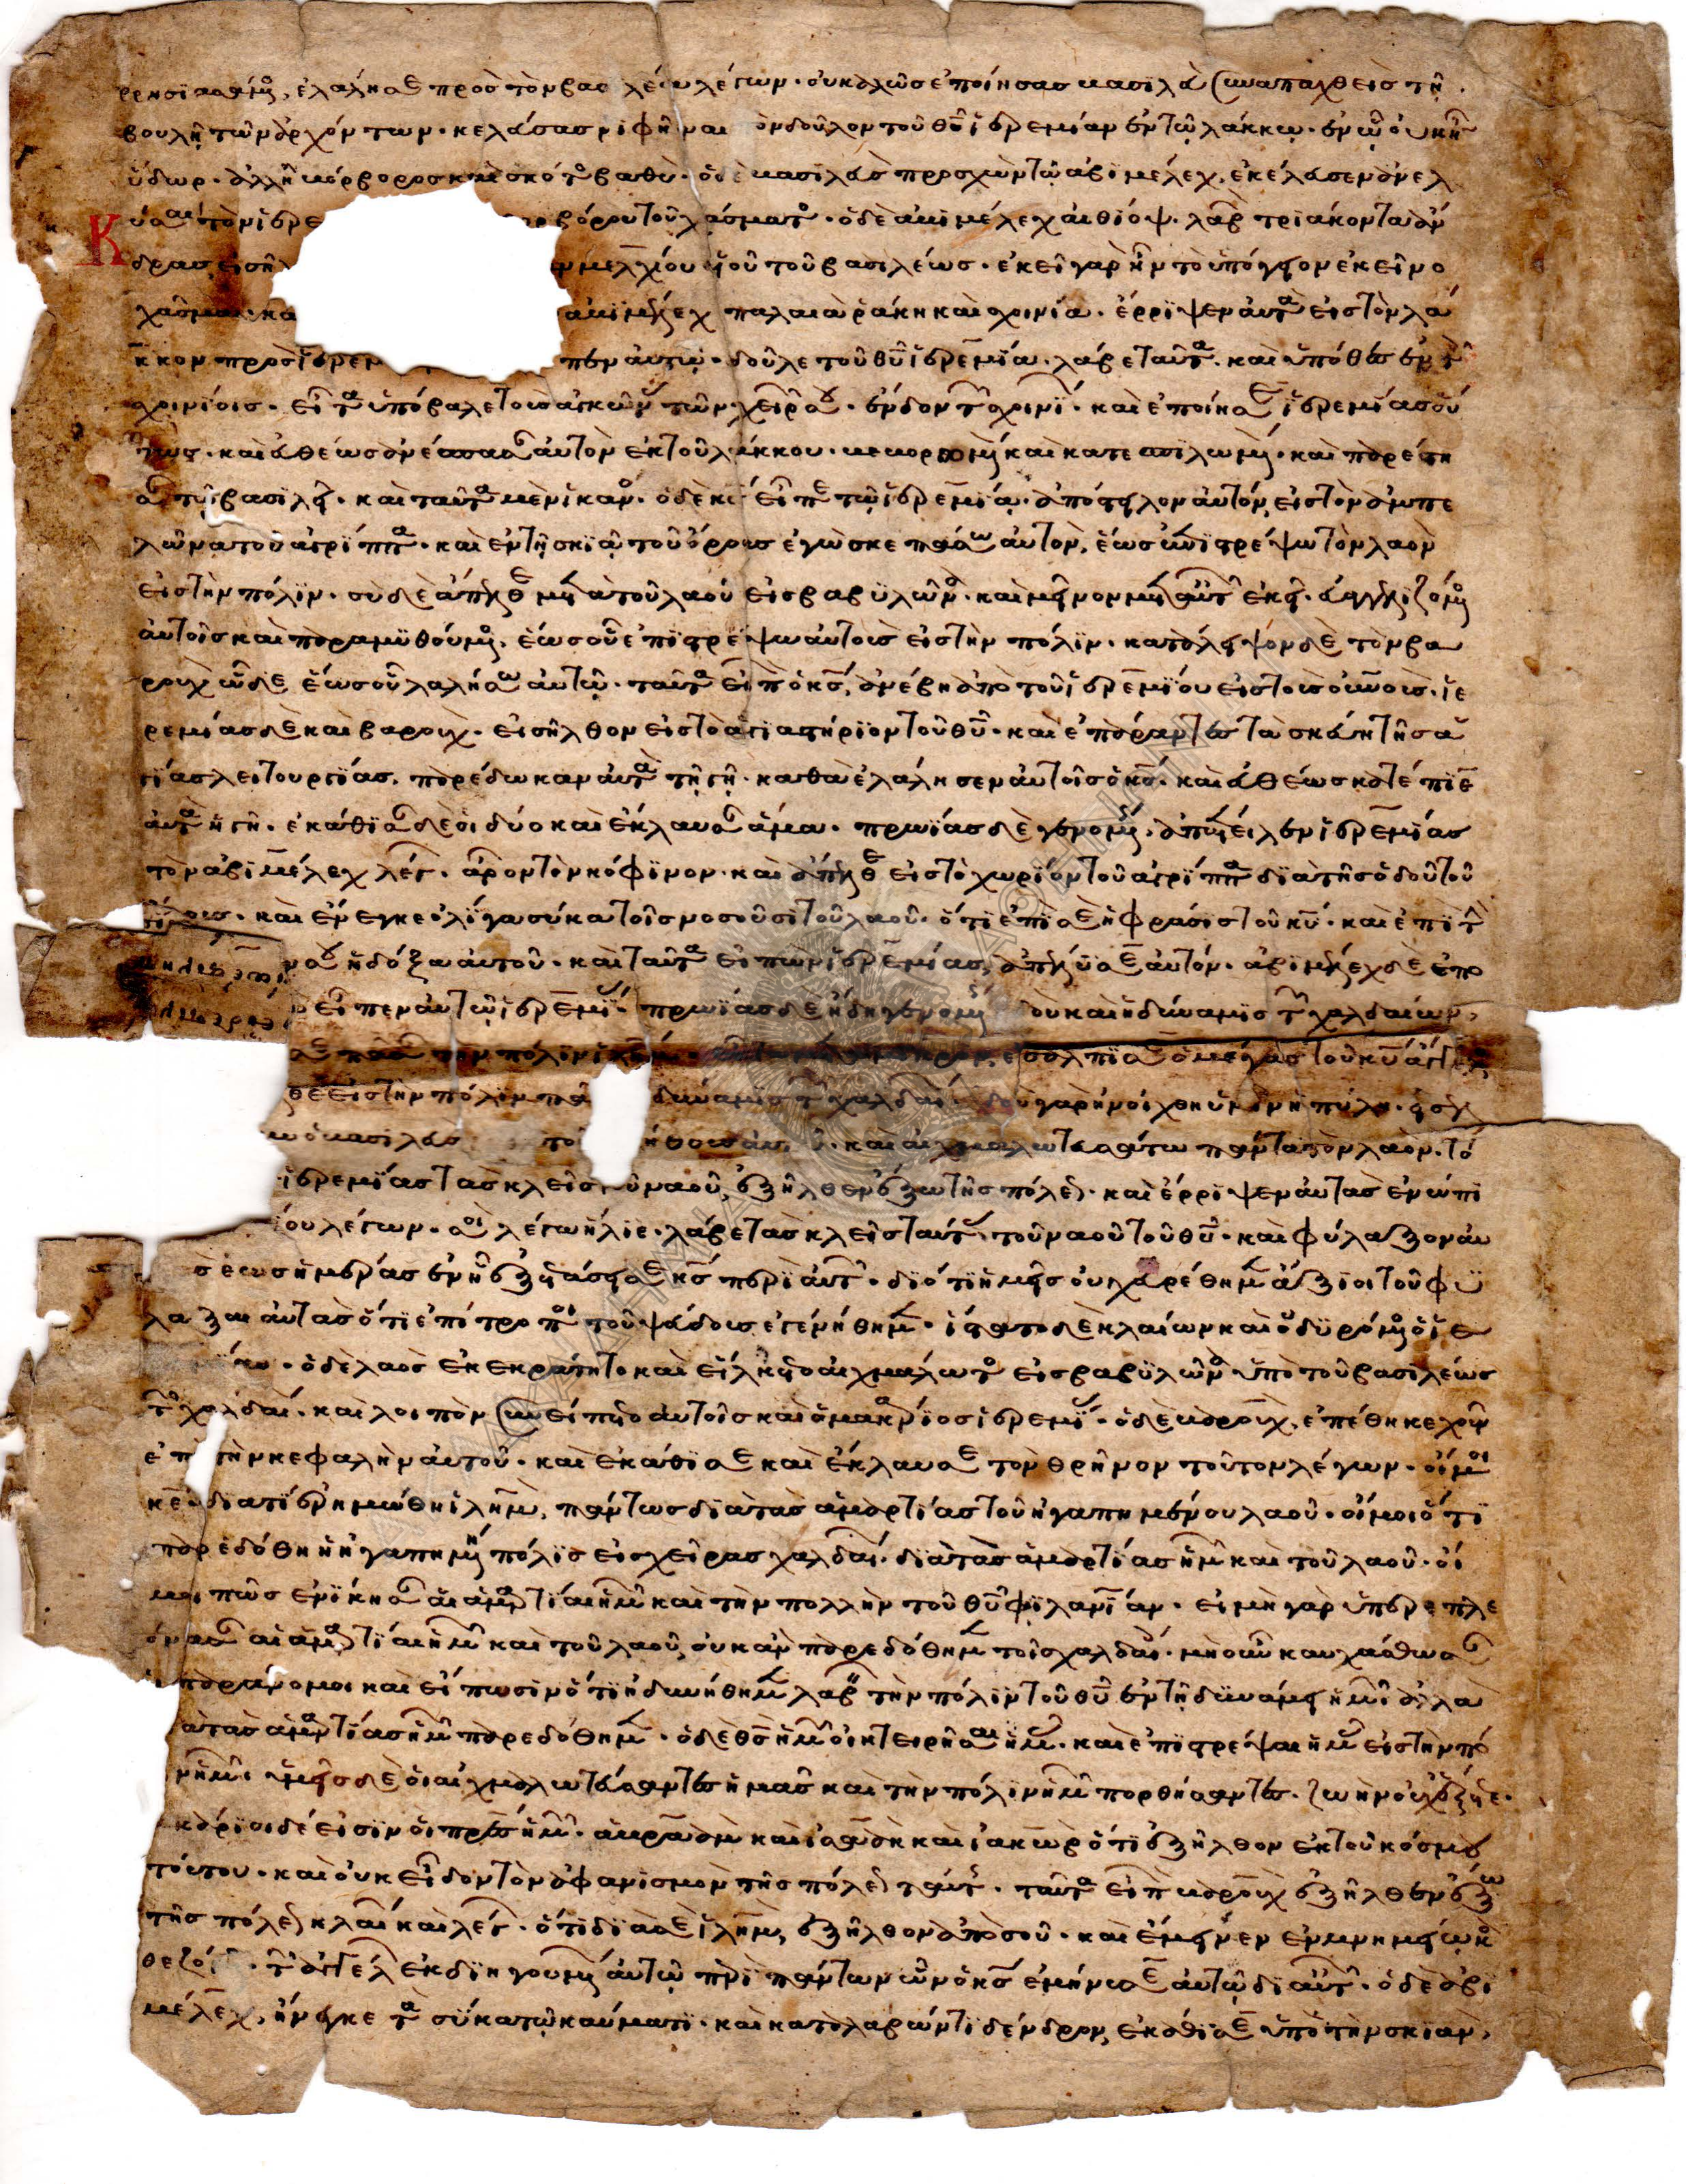 ἐλάλησε πρὸς τὸν βασ λέα λέγων · οὐ καλῶς ἐποίησας βασιλεῦ συναπαχθεὶς τῆ
βουλῆ τῶν ἀρχόντων · κελεύσας ριφῆναι ὸν δοῦλον τοῦ θῦ ἱερεμίαν ἐν τῶ λάκκω · ἐν ὧ οὐκ ἦν
ὕδωρ · ἀλλ ἦν βόρβορος καὶ σκότος βαθὺ · ὁ δὲ βασιλεὺς προσχὼν τῶ ἀβιμέλεχ, ἐκέλευσεν ἀνελ
κύσαι τὸν ἱερε βορβόρου τοῦ χάσματος · ὁ δὲ ἀβιμέλεχ αἰθίοψ · λαβ τριάκοντα ἄν
δρας εἰσῆλ μελχίου υἱοῦ τοῦ βασιλέως · ἐκεῖ γὰρ ἦν τὸ ὑπόγειον ἐκεῖνο
χάσμα · κα ἀβιμέλεχ παλαιὰ ράκη καὶ σχοινία · ἔρριψεν αὐτὰ εἰς τὸν λά
κκον πρὸς ἱερεμ πεν αὐτῶ · δοῦλε τοῦ θῦ ἱερεμία · λάβε ταῦτα · καὶ ὑπόθες ἐν τοῖς
σχοινίοις · εἶτα ὑπόβαλε τοὺς ἀγκῶνας τῶν χειρῶν σου · ἔνδον τῶν σχοινί · καὶ ἐποίησεν ἱερεμίας οὕ
τως · καὶ εὐθέως ἀνέσπασαν αὐτὸν ἐκ τοῦ λάκκου · καὶ παρέστη
σαν τῶ βασιλεῖ · καὶ ταῦτα μὲν ἱκανὸν · ὁ δὲ κς εἶπε τῶ ἱερεμία · ἀπόστειλον αὐτὸν εἰς τὸν ἀμπε
λῶνα τοῦ ἀγρίππα · καὶ ἐν τῆ σκιᾶ τοῦ ὄρους ἐγὼ σκεπάσω αὐτὸν, ἕως ἂν ἐπιστρέψω τὸν λαὸν
εἰς τὴν πόλιν · σὺ δὲ ἄπελθε μετὰ τοῦ λαοῦ εἰς βαβυλῶνα · καὶ μεῖνον μετ αὐτῶν ἐκεῖ · εὐαγγελιζόμενος
αὐτοῖς καὶ παραμυθούμενος, ἕως οὗ ἐπιστρέψω αὐτοὺς εἰς τὴν πόλιν · κατάλειψον δὲ τὸν βα
ροὺχ ὧδε ἕως οὗ λαλήσω αὐτῶ · ταῦτα εἰπὼν ὁ κς, ἀνέβη ἀπὸ τοῦ ἱερεμίου εἰς τοὺς οὐνοὺς · ἱε
ρεμίας δὲ καὶ βαροὺχ · εἰσῆλθον εἰς τὸ ἁγιαστήριον τοῦ θῦ · καὶ ἐπάραντες τὰ σκεύη τῆς ἁ
γίας λειτουργίας, παρέδωκαν αὐτὰ τῆ γῆ · καθὰ ἐλάλησεν αὐτοῖς ὁ κς · καὶ εὐθέως κατέπιε
αὐτὰ ἡ γῆ · ἐκάθισαν δὲ οἱ δύο καὶ ἔκλαυσαν ἅμα · πρωΐας δὲ γενομένης, ἀπέστειλεν ἱερεμίας
τὸν ἀβιμέλεχ λέγων · ἆρον τὸν κόφινον · καὶ ἄπελθε εἰς τὸ χωρίον τοῦ ἀγρίππα διὰ τῆς ὁδοῦ τοῦ
ὄρους · καὶ ἔνεγκε ὀλίγα σύκα τοῖς νοσοῦσι τοῦ λαοῦ · ὅτι ἐπὶ σὲ ἡ φράσις τοῦ κῦ · καὶ ἐπὶ τὴν
ἡ δόξα αὐτοῦ · καὶ ταῦτα εἰπὼν ἱερεμίας, ἀπέλυσεν αὐτὸν · ἀβιμέλεχ δὲ ἐπο
εἶπεν αὐτῶ ἱερεμίας · πρωΐας δὲ ἤδη γενομένης δοὺ καὶ ἡ δύναμις τῶν χαλδαίων,
τὴν πόλιν ἐσάλπισεν ὁ μέγας τοῦ κῦ ἄγγελος
θε εἰς τὴν πόλιν δύναμις τῶν χαλδαί · ἰδοὺ γὰρ ἠνοίχθη ὑμῖν ἡ πύλη · εἰσελ
ὁ βασιλεὺς καὶ αἰχμαλωτευσάτω πάντα τὸν λαὸν · τό
ἱερεμίας τὰς κλεῖς τοῦ ναοῦ, ἐξῆλθεν ἔξω τῆς πόλεως · καὶ ἔρριψεν αὐτὰς ἐνώπι
ίου λέγων · σοὶ λέγω ἥλιε · λάβε τὰς κλεῖς ταύτας τοῦ ναοῦ τοῦ θῦ · καὶ φύλαξον αὐ
ὰς ἕως ἡμέρας ἐν ἧ ἐξετάσει σε κς περὶ αὐτῶν · διότι ἡμεῖς οὐχ εὑρέθημεν ἄξιοι τοῦ φυ
λάξαι αὐτὰς ὅτι ἐπίτροποι τοῦ ψεύδους ἐγενήθημεν · ἵστατο δὲ κλαίων καὶ ὀδυρόμενος ὁ ἱε
ὁ δὲ λαὸς ἐκεκράτητο καὶ εἵλκετο αἰχμάλωτος εἰς βαβυλῶνα ὑπὸ τοῦ βασιλέως
τῶν χαλδαί · καὶ λοιπὸν συνείπετο αὐτοῖς καὶ ὁ μακάριος ἱερεμίας · ὁ δὲ βαροὺχ, ἐπέθηκε χοῦν
ἐπὶ τὴν κεφαλὴν αὐτοῦ · καὶ ἐκάθισε καὶ ἔκλαυσε τὸν θρῆνον τοῦτον λέγων · οἴμοι
κε διατί ἐρημώθη ἱλῆμ, πάντως διὰ τὰς ἁμαρτίας τοῦ ἠγαπημένου λαοῦ · οἴμοι ὅτι
παρεδόθη ἡ ἠγαπημένη πόλις εἰς χεῖρας χαλδαί · διὰ τὰς ἁμαρτίας ἡμῶν καὶ τοῦ λαοῦ · οἴ
μοι πῶς ἐνίκησαν αἱ ἁμαρτίαι ἡμῶν καὶ τὴν πολλὴν τοῦ θῦ φιλανίαν · εἰ μὴ γὰρ ὑπερεπλε
όνασαν αἱ ἁμαρτίαι ἡμῶν καὶ τοῦ λαοῦ, οὐκ ἂν παρεδόθημεν τοῖς χαλδαίοις · μὴ οὖν καυχάσθωσαν
οἱ παράνομοι καὶ εἴπωσιν ὅτι ἠδυνήθημεν λαβεῖν τὴν πόλιν τοῦ θῦ ἐν τῆ δυνάμει ἡμῶν ἀλλὰ
ὰ τὰς ἁμαρτίας ἡμῶν παρεδόθημεν · ὁ δὲ θς ἡμῶν οἰκτειρήσαι ἡμᾶς · καὶ ἐπιστρέψαι ἡμᾶς εἰς τὴν πό
ν ἡμῶν · ὑμεῖς δὲ οἱ αἰχμαλωτεύσαντες ἡμᾶς καὶ τὴν πόλιν ἡμῶν πορθήσαντες · ζωὴν οὐχ ἕξετε ·
μακάριοι δέ εἰσιν οἱ πρες ἡμῶν · ἀβραὰμ καὶ ἰσαὰκ καὶ ἰακὼβ ὅτι ἐξῆλθον ἐκ τοῦ κόσμου
τούτου · καὶ οὐκ εἶδον τὸν ἀφανισμὸν τῆς πόλεως ταύτης · ταῦτα εἰπὼν βαροὺχ ἐξῆλθεν ἔξω
τῆς πόλεως κλαίων καὶ λέγων · ὅτι διὰ σὲ ἱλῆμ, ἐξῆλθον ἀπὸ σοῦ · καὶ ἔμεινεν ἐν μνημείω κα
θεζό · τῶν ἀγγέλων ἐκδιηγουμένων αὐτῶ περὶ πάντων ὧν ὁ κς ἐμήνυσεν αὐτῶ δι αὐτῶν · ὁ δὲ ἀβι
μέλεχ, ἤνεγκε τὰ σύκα τῶ καύματι · καὶ καταλαβών τι δένδρον, ἐκάθισεν ὑπὸ τὴν σκιὰν,